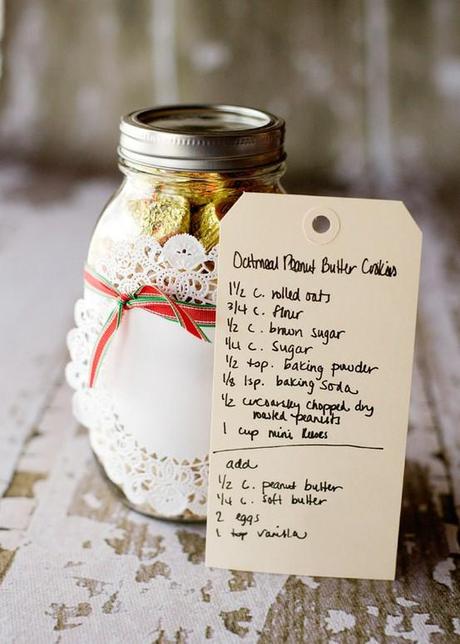 Oatmeal Peanut Butter Cookies
1 1/2 c. rolled oats
3/4 c. flour
1/2 c. brown sugar
1/4 c. sugar
1/2 tsp. baking powder
1/8 tsp. baking soda
1/2 c coarsley chopped dry
roasted peanuts
1 cup mini Reeses
add
1/2 c. peanut butter
1/4 c. soft butter
2 eggs
1 tsp vanilla